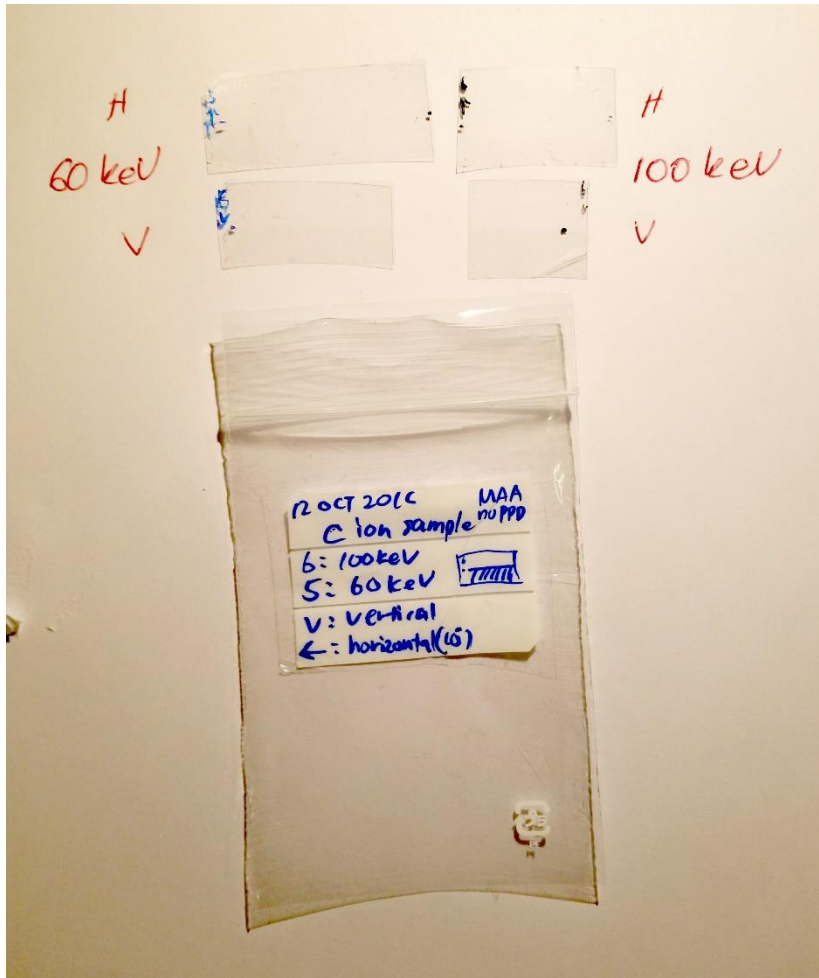 H
60 keV
V
H
100 keV
V
12 OCT 201C MAA
C ion sample no PPD
6: 100keV
5: 60 keV
V: Vertical
←: horizontal(10°)